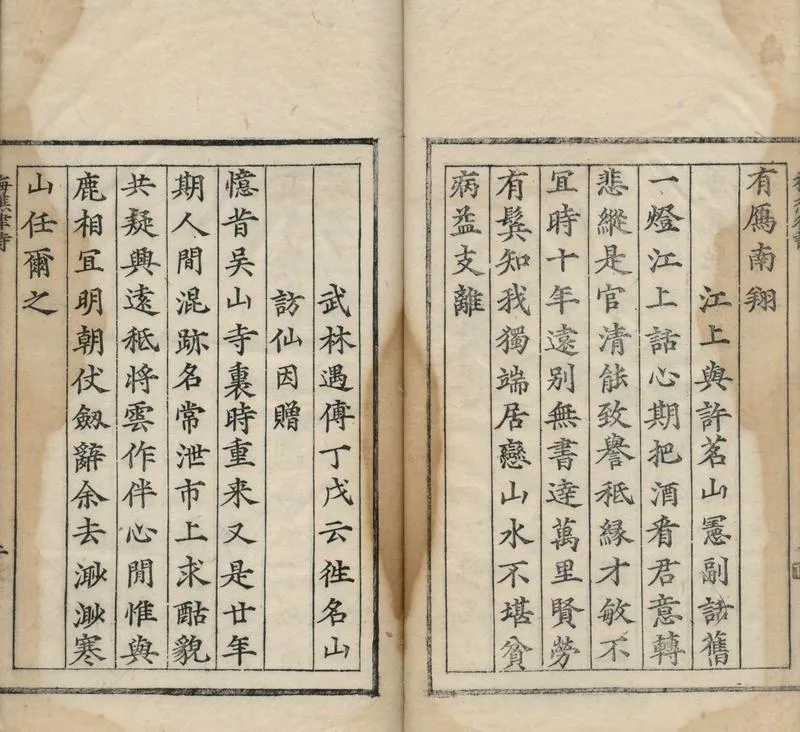 有鴈南翔
江上與許茗山憲副話舊
一燈江上話心期把酒看君意轉
悲縱是官清能致譽秪緣才敏不
宜時十年遠別無書達萬里賢勞
有鬂知我獨端居戀山水不堪貧
病益支離
武林遇傅丁戊云徃名山
訪仙因贈
憶昔吳山寺裏時重来又是廿年
期人間混跡名常泄市上求酤貌
共疑興遠秪將雲作伴心閒惟與
鹿相宜明朝仗劔辭余去渺渺寒
山任爾之